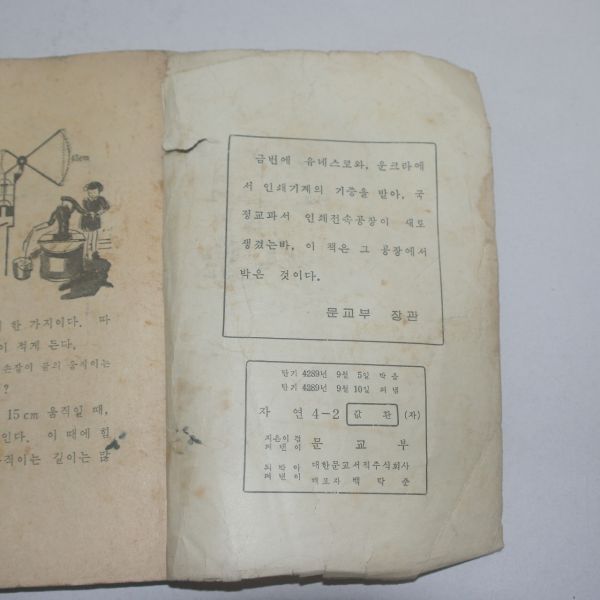 45cm
한 가지이다. 따
이 적게 든다.
손잡이 끝의 움직이는
?
15cm 움직일 때,
인다. 이 때에 힘
직이는 길이는 많
금번에 유네스코와, 운크라에
서 인쇄기계의 기증을 받아, 국
정교과서 인쇄전속공장이 새로
생겼는바, 이 책은 그 공장에서
박은 것이다.
문교부 장관
단기 4289년 9월 5일 박음
단기 4289년 9월 10일 펴냄
자 연 4-2 값 환 (자)
지은이 겸
펴낸이 문 교 부
박아
펴낸이 대한문교서적주식회사
대표자 백